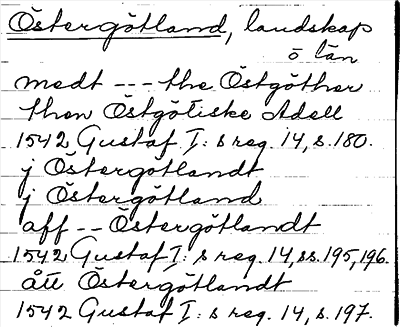 Östergötland, landskap
o län
medt --- the Östgöther
then Östgötiske Adell
1542 Gustaf I: s reg. 14, s. 180.
j Östergötlandt
j Östergötland
aff -- Östergötlandt
1542 Gustaf I: s reg. 14, ss. 195, 196.
ått Östergötlandt
1542 Gustaf I: s reg. 14, s. 197.